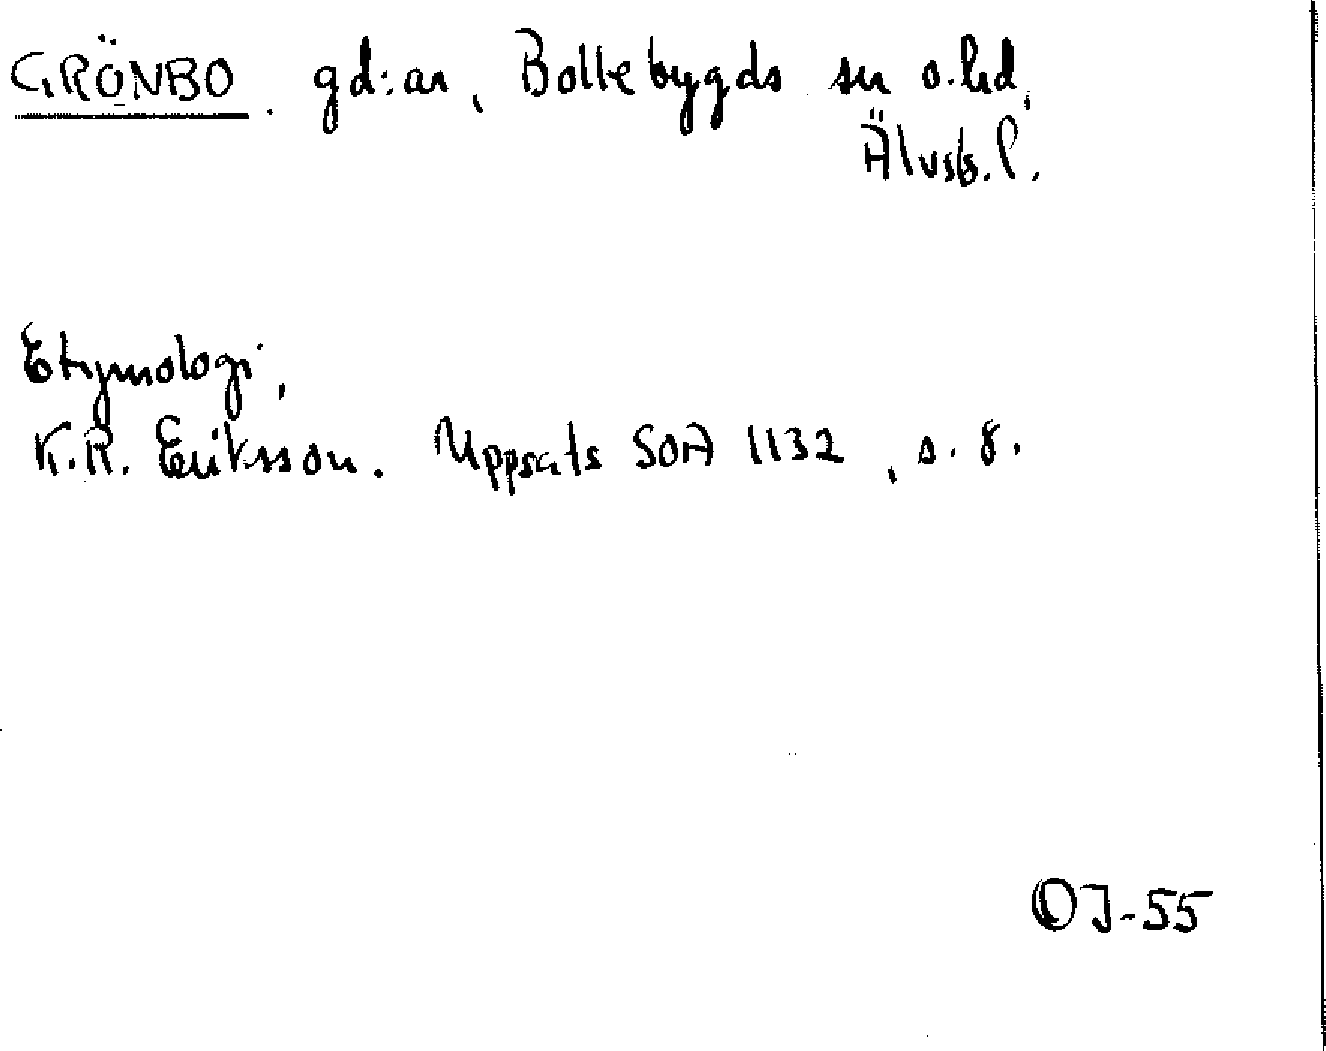 GRÖNBO. gd:ar, Bollebygds sn o. hd,
Älvsb. l.
Etymologi,
K.R. Eriksson. Uppsats SOA 1132, s. 8.
OJ-55